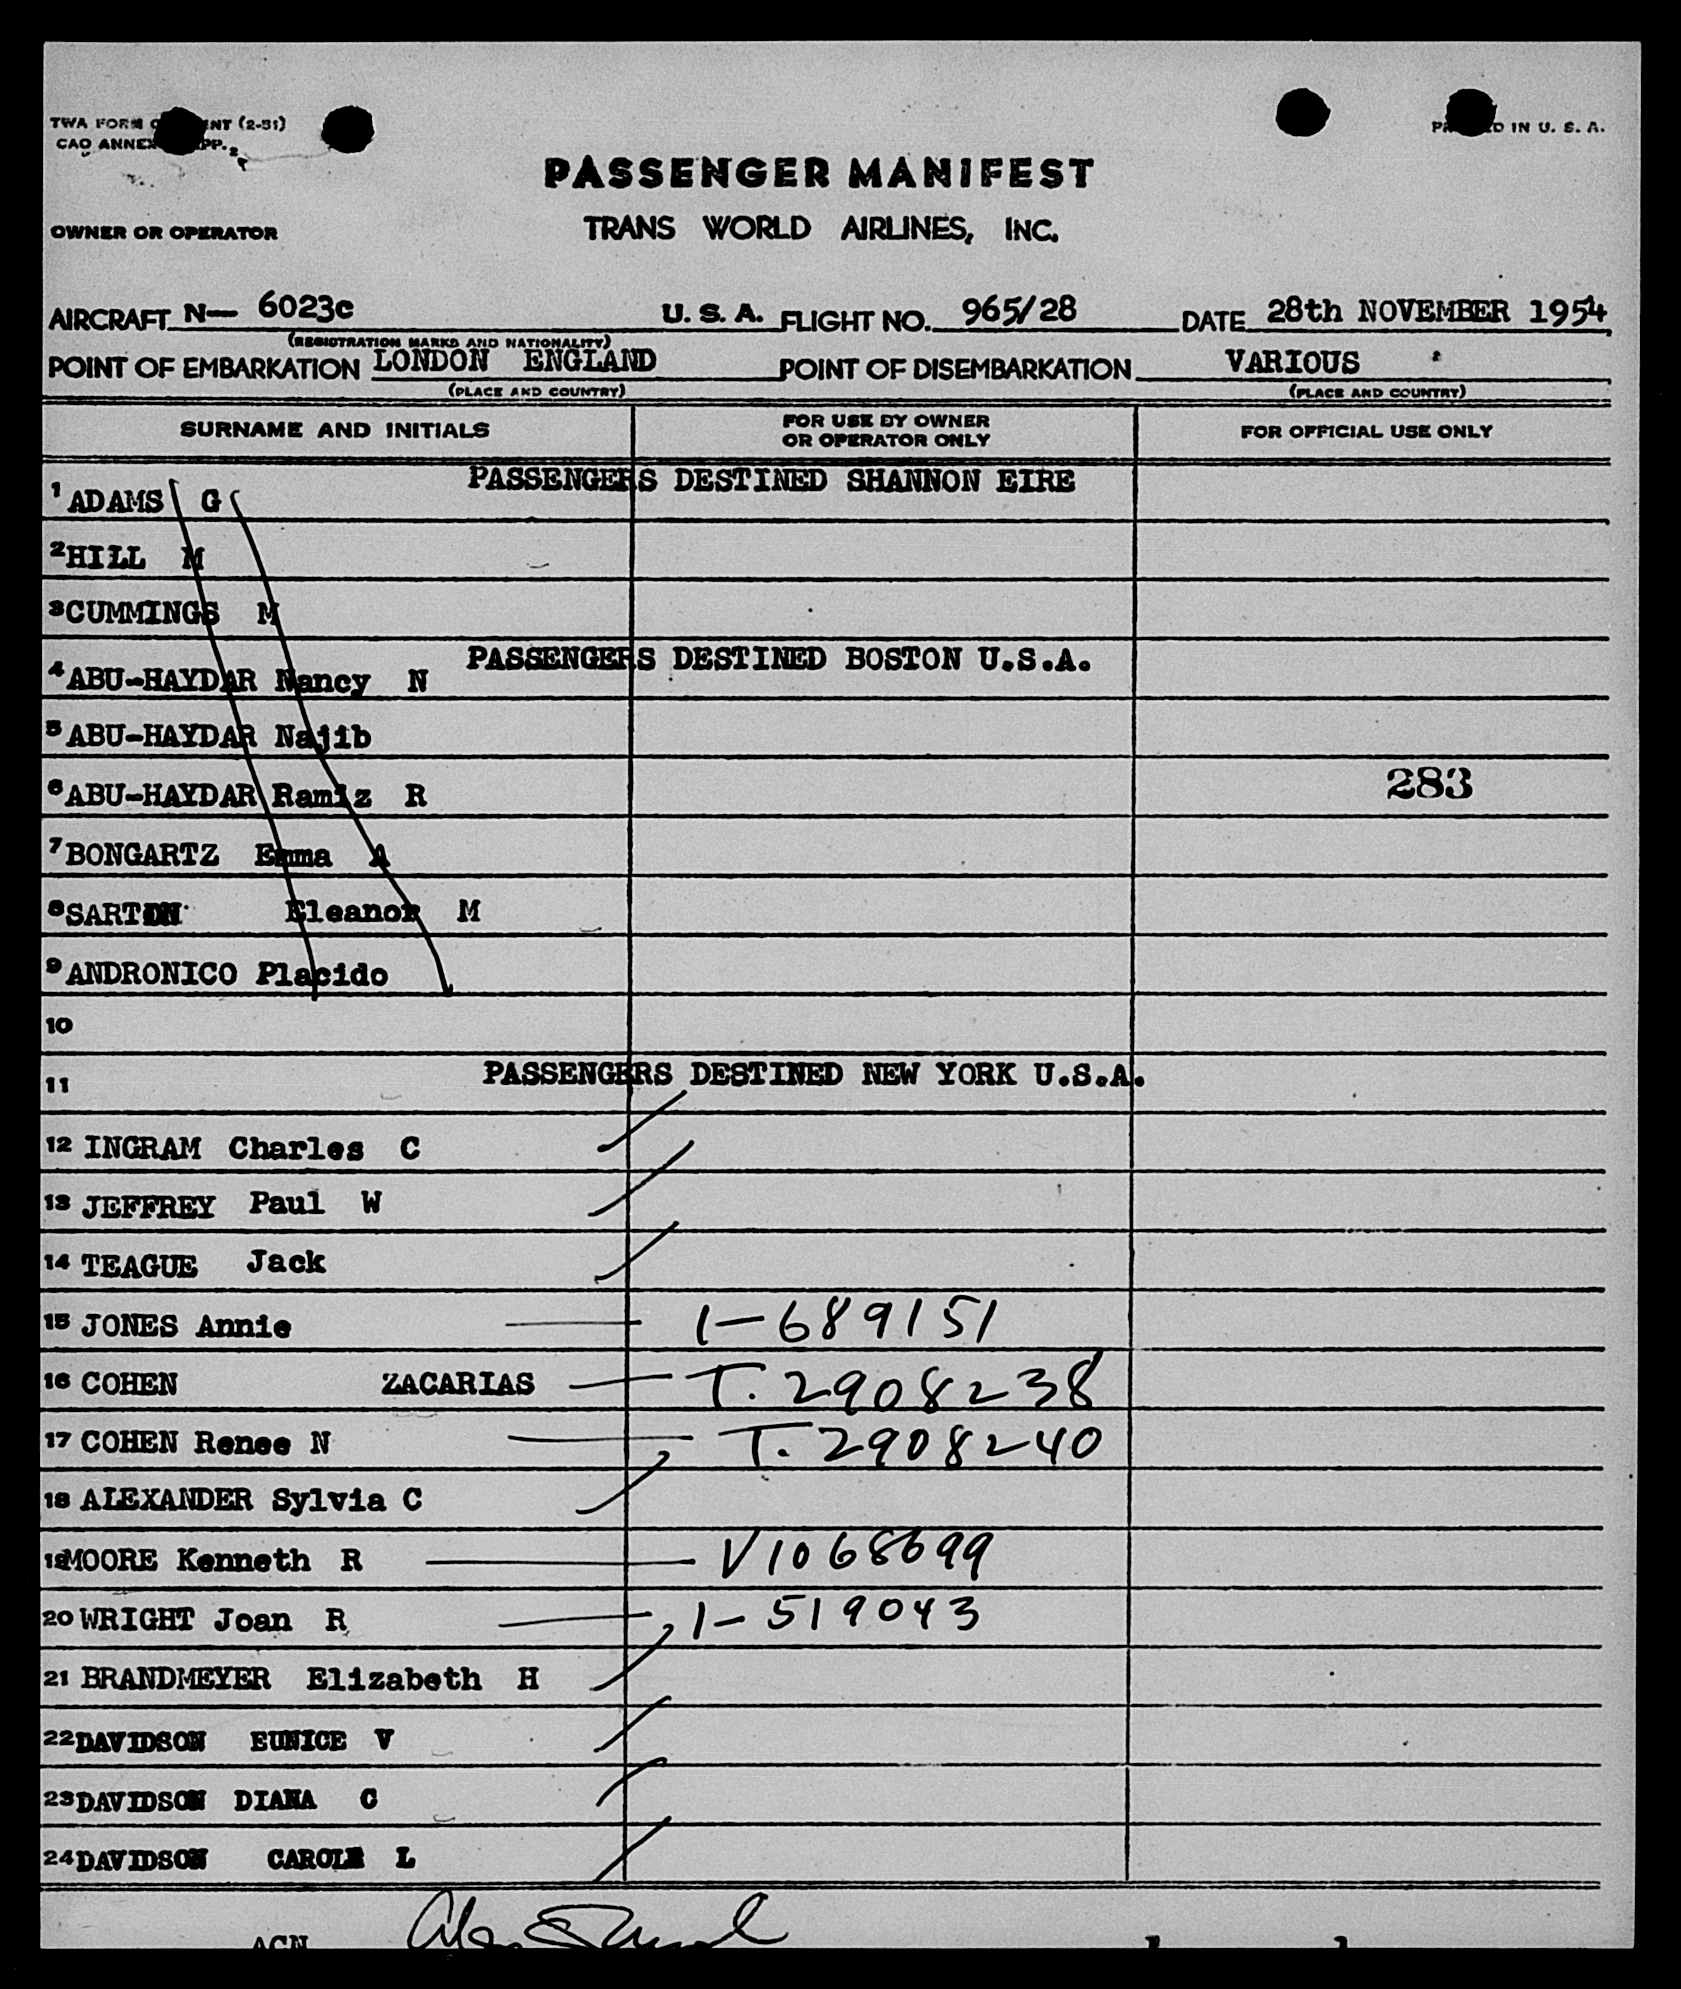 TWA FORM NT (2-51)
PRINTED IN U. S. A.
CAO ANNEX PP. 2
PASSENGER MANIFEST
OWNER OR OPERATOR TRANS WORLD AIRLINES, INC.
AIRCRAFT N— 6023c U. S. A. FLIGHT NO. 965/28 DATE 28th NOVEMBER 1954
(REGISTRATION MARKS AND NATIONALITY)
POINT OF EMBARKATION LONDON ENGLAND POINT OF DISEMBARKATION VARIOUS
(PLACE AND COUNTRY) (PLACE AND COUNTRY)
SURNAME AND INITIALS FOR USE BY OWNER OR OPERATOR ONLY FOR OFFICIAL USE ONLY
PASSENGERS DESTINED SHANNON EIRE
1 ADAMS G
2 HILL M
3 CUMMINGS M
PASSENGERS DESTINED BOSTON U.S.A.
4 ABU-HAYDAR Nancy N
5 ABU-HAYDAR Najib
6 ABU-HAYDAR Ramiz R 283
7 BONGARTZ Emma A
8 SARTON Eleanor M
9 ANDRONICO Placido
10
11 PASSENGERS DESTINED NEW YORK U.S.A.
12 INGRAM Charles C
13 JEFFREY Paul W
14 TEAGUE Jack
15 JONES Annie — 1-689151
16 COHEN ZACARIAS — T. 2908238
17 COHEN Renee N — T. 2908240
18 ALEXANDER Sylvia C
19 MOORE Kenneth R — V1068699
20 WRIGHT Joan R — 1-519043
21 BRANDMEYER Elizabeth H
22 DAVIDSON EUNICE V
23 DAVIDSON DIANA C
24 DAVIDSON CAROLE L
ACN